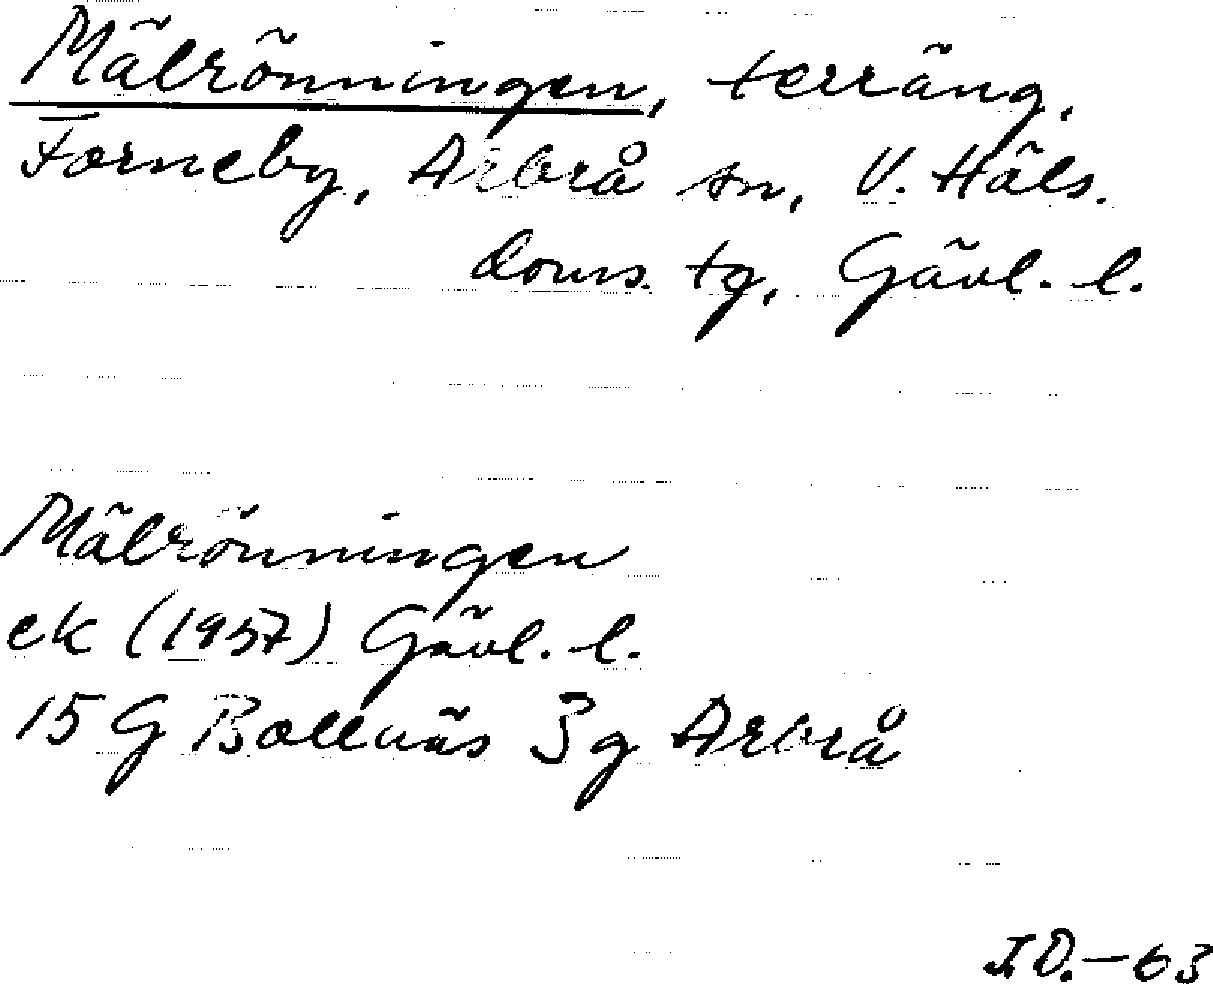 Mälrönningen, terräng,
Forneby, Arbrå sn, V. Häls.
doms. tg, Gävl. l.
Mälrönningen
ek (1957) Gävl. l.
15 G Bollnäs 3g Arbrå
I D.-63